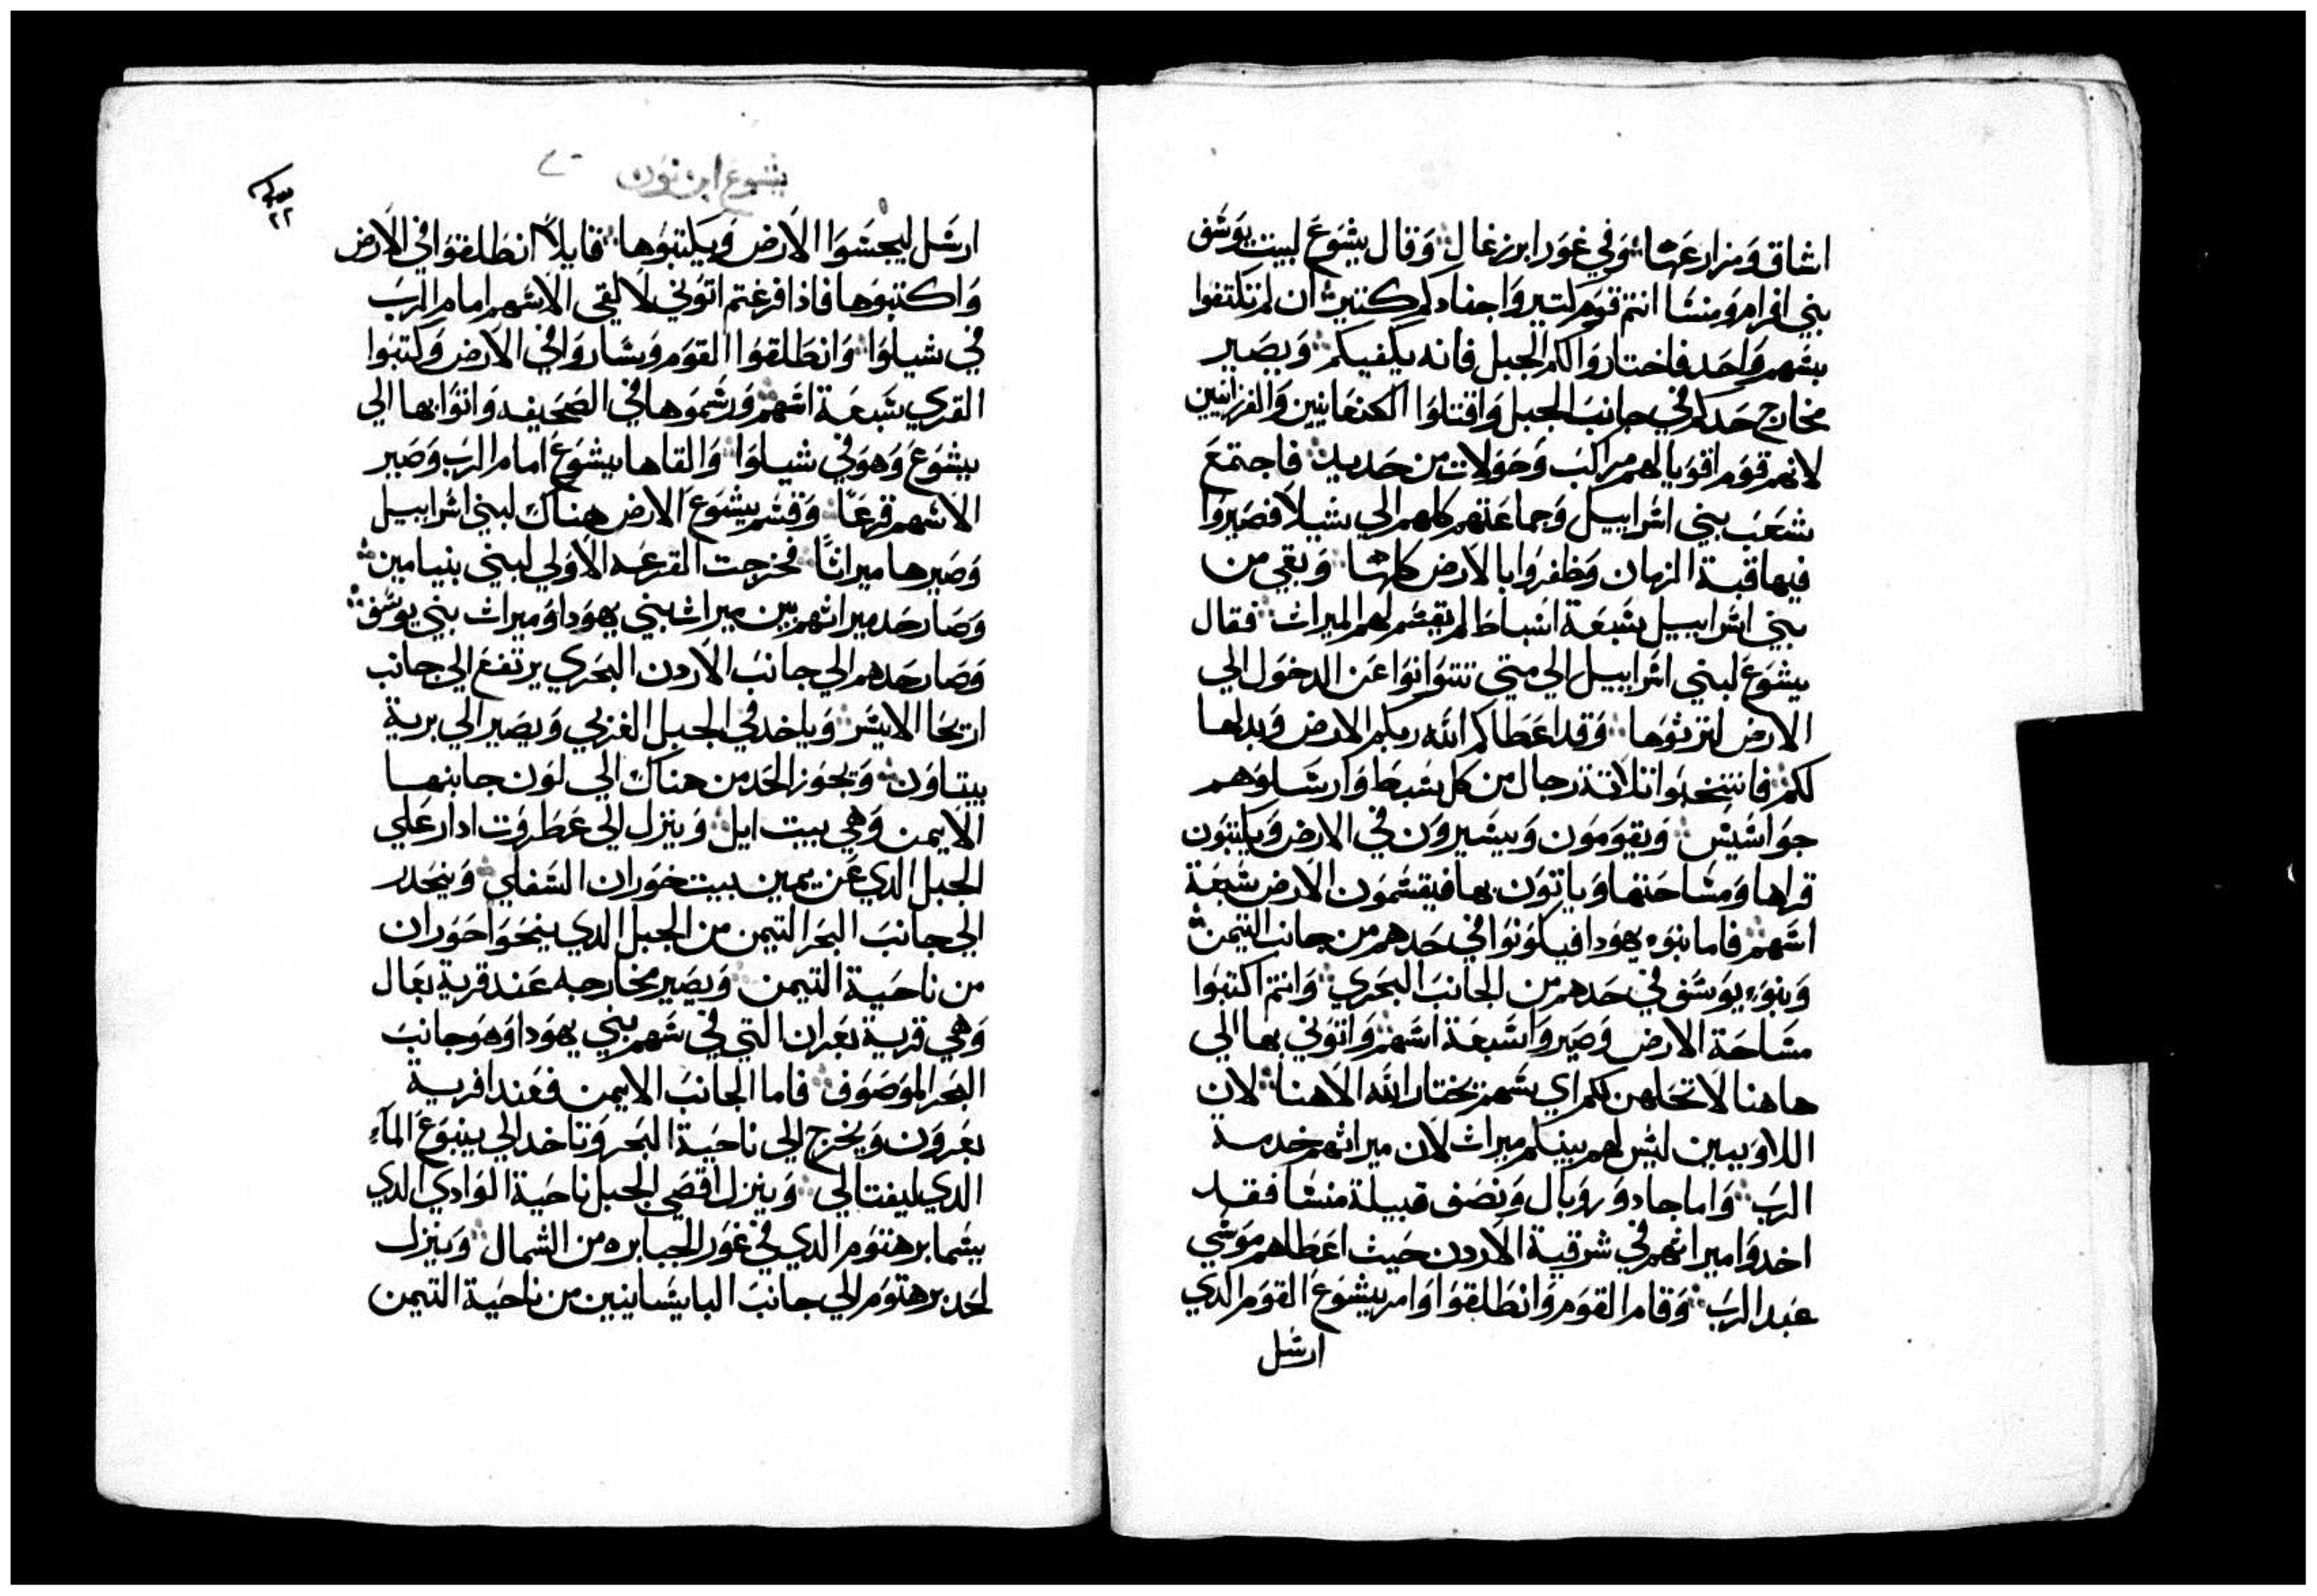 اساق ومزارعها وفي غور ابرزغال وقال يشوع لبيت يوسف
بني افرام ومنسا انتم قوم كتير واجنادكم كتيرة ان لم تكتفوا
بسهم واحد فاختاروا لكم الجبل فانه يكفيكم ويصير
مخارج حدكم في جانب الجبل واقتلوا الكنعانيين والفرزانيين
لانهم قوم اقويا لهم مراكب وحولات من حديد فاجتمع
شعب بني اسراييل وجماعتهم كلهم الي شيلا فصيروا
فيها قبة الزمان وظفروا بالارض كلها وبقي من
بني اسراييل سبعة اسباط لم يقسم لهم الميراث فقال
يشوع لبني اسراييل الي متي تتوانوا عن الدخول الي
الارض لترثوها وقد اعطاكم الله ربكم الارض وبدلها
لكم فانتخبوا تلاتة رجال من كل سبط وارسلوهم
جواسيس ويقومون ويسيرون في الارض ويكتبون
قراها ومساحتها وياتون بها فيقسمون الارض سبعة
اسهم فاما بنوء يهودا فيكونوا في حدهم من جانب التيمن
وبنوء يوسف في حدهم من الجانب البحري وانتم اكتبوا
مساحة الارض وصيروا سبعة اسهم واتوني بها الي
هاهنا لاتخلهن لكم اي سهم يختار الله الاهنا لان
اللاويين ليس لهم بينكم ميراث لان ميراثهم خدمة
الرب واما جاد وروبال ونصف قبيلة منسا فقد
اخدوا ميراثهم في شرقية الاردن حيث اعطاهم موسي
عبد الرب وقام القوم وانطلقوا وامر يشوع القوم الدي
ارسل
يشوع ابن نون
ارسل ليجسوا الارض ويكتبوها قايلا انطلقوا في الارض
واكتبوها فاذا فرغتم اتوني لالقي الاسهم امام الرب
في شيلوا وانطلقوا القوم وساروا في الارض وكتبوا
القري سبعة اسهم ورسموها في الصحيفه واتوا بها الي
يشوع وهو في شيلوا والقاها يشوع امام الرب وصير
الاسهم قرعا وقسم يشوع الارض هناك لبني اسراييل
وصيرها ميراثا فخرجت القرعه الاولي لبني بنيامين
وصار حد ميراثهم بين ميراث بني يهودا وميراث بني يوسف
وصار حدهم الي جانب الاردن البحري يرتفع الي جانب
اريحا الايسر وياخد في الجبل الغربي ويصير الي برية
بيتاون ويجوز الحد من هناك الي لون جانبها
الايمن وهي بيت ايل وينزل الي عطروت ادار علي
الجبل الدي عن يمين بيت حوران السفلي وينحدر
الي جانب البحر التيمن من الجبل الدي ينحوا حوران
من ناحية التيمن ويصير مخارجه عند قرية بعال
وهي قرية بعران التي في سهم بني يهودا وهو جانب
البحر الموصوف فاما الجانب الايمن فعند اقرية
بعرون ويخرج الي ناحية البحر وتاخد الي ينبوع المآء
الدي ليفتالي وينزل اقصي الجبل ناحية الوادي الدي
يسما برهنوم الدي في غور الجبابره من الشمال وينزل
لحد برهنوم الي جانب اليابسانيين من ناحية التيمن